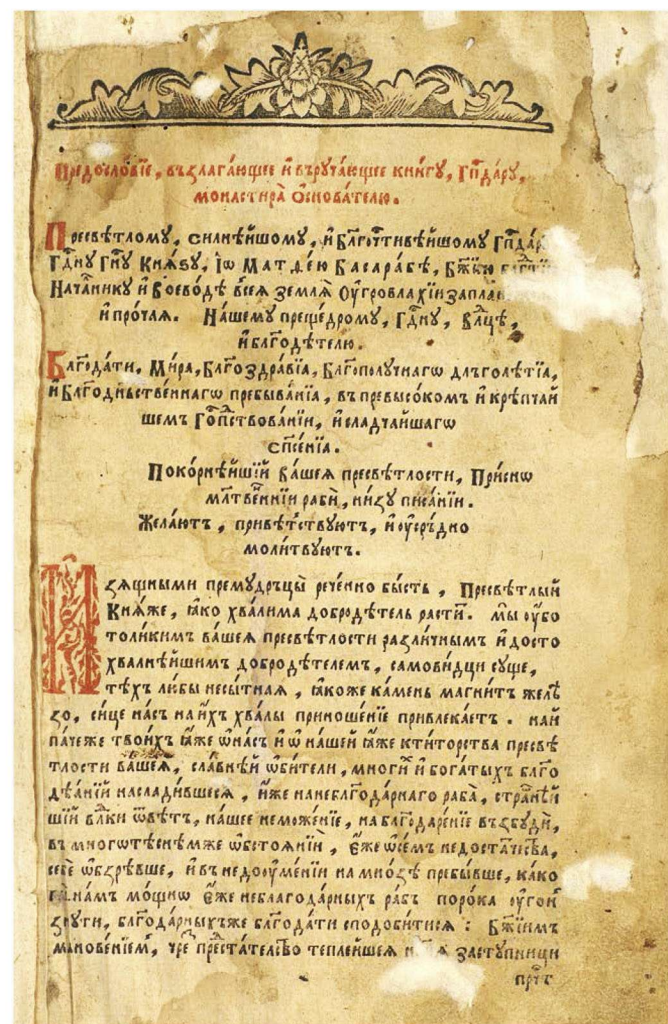 Предословїе, възлагающее и҆ въручающее книгу, Гп҇дару,
монастирѧ Ѻ҆снователю.
Пресвѣтломꙋ, силнѣйшомꙋ, и҆ Бл҃гоч҇тивѣйшомꙋ
Гд҇нꙋ Гн҇ꙋ Кнѧѕꙋ, І҆ѡ Матѳе́ю Басара́бѣ, Бж҃їею
Нача́лникꙋ и҆ Воево́дѣ всеѧ̀ землѧ̀ Оу҆гровлахїи
и҆ про́чаѧ. На́шемꙋ прещедромꙋ, Гд҇нꙋ, Вл҇цѣ,
и҆ бл҃годѣ́телю.
Бл҃года́ти, Ми́ра, Бл҃гоздра́вїѧ, Бл҃гополу́чнагѡ длъголѣ́тїѧ,
и҆ бл҃годе́ньственнагѡ пребыва́нїѧ, въ превысо́комъ и҆ крѣпчай
шемъ Гоп҇ствова́нїи, и҆ сладча́йшагѡ
сп҃се́нїѧ.
Поко́рнѣйшїй ва́шеѧ пресвѣ́тлости, При́снѡ
мл҃твеннїи раби̑, ни́зꙋ пи́санїи.
Жела́ютъ, привѣ́тствꙋютъ, и҆ оу҆сръ́дно
моли́твꙋютъ.
Изѧщными премꙋдръцы̀ рече́нно бы́сть, Пресвѣ́тлый
Кнѧ́же, ꙗ҆́ко хвали́ма добродѣ́тель расти́т. мы̀ оу҆́бо
толи́кимъ ва́шеѧ пресвѣ́тлости разли́чнымъ и҆ досто
хва́лнѣйшимъ добродѣ́телемъ, самови́дци сꙋще,
тѣ́хъ любы̀ несы́тнаѧ, ꙗ҆́коже ка́мень магни́тъ желѣ
зо, си́це на́съ на и҆́хъ хвалы̀ приноше́нїе привлека́етъ. най
па́чеже твои́хъ ꙗ҆́же ѡ҆ на́съ и҆ ѡ҆ на́шей ꙗ҆́же кти́торства пресвѣ
тлости ва́шеѧ, сла́внѣй ѡ҆би́тели, мно́гих и҆ бога́тыхъ бл҃го
дѣѧ́нїй наслади́вшесѧ, и҆́же на неблагода́рнаго раба̀, стра́нѣй
шїй вл҇ки ѿвѣ́тъ, на́шее неможе́нїе, на благодаре́нїе възбꙋди̑,
въ многотѣ́снѣмже ѡ҆бстоѧ́нїи, є҆́же ѡ҆ се́мъ недоста́чества,
себѐ ѡ҆бзрѣ́вше, и҆ въ недооꙋмѣ́нїи на мно́зѣ пребы́вше, ка́ко
на́мъ мо́щнѡ є҆́же неблагода́рныхъ ра́бъ поро́ка оу҆гон
зꙋти, благода́рныхъже благода́ти сподо́битисѧ: Бж҃їимъ
мановенїем, чрез престателство теплейшеѧ застꙋпници